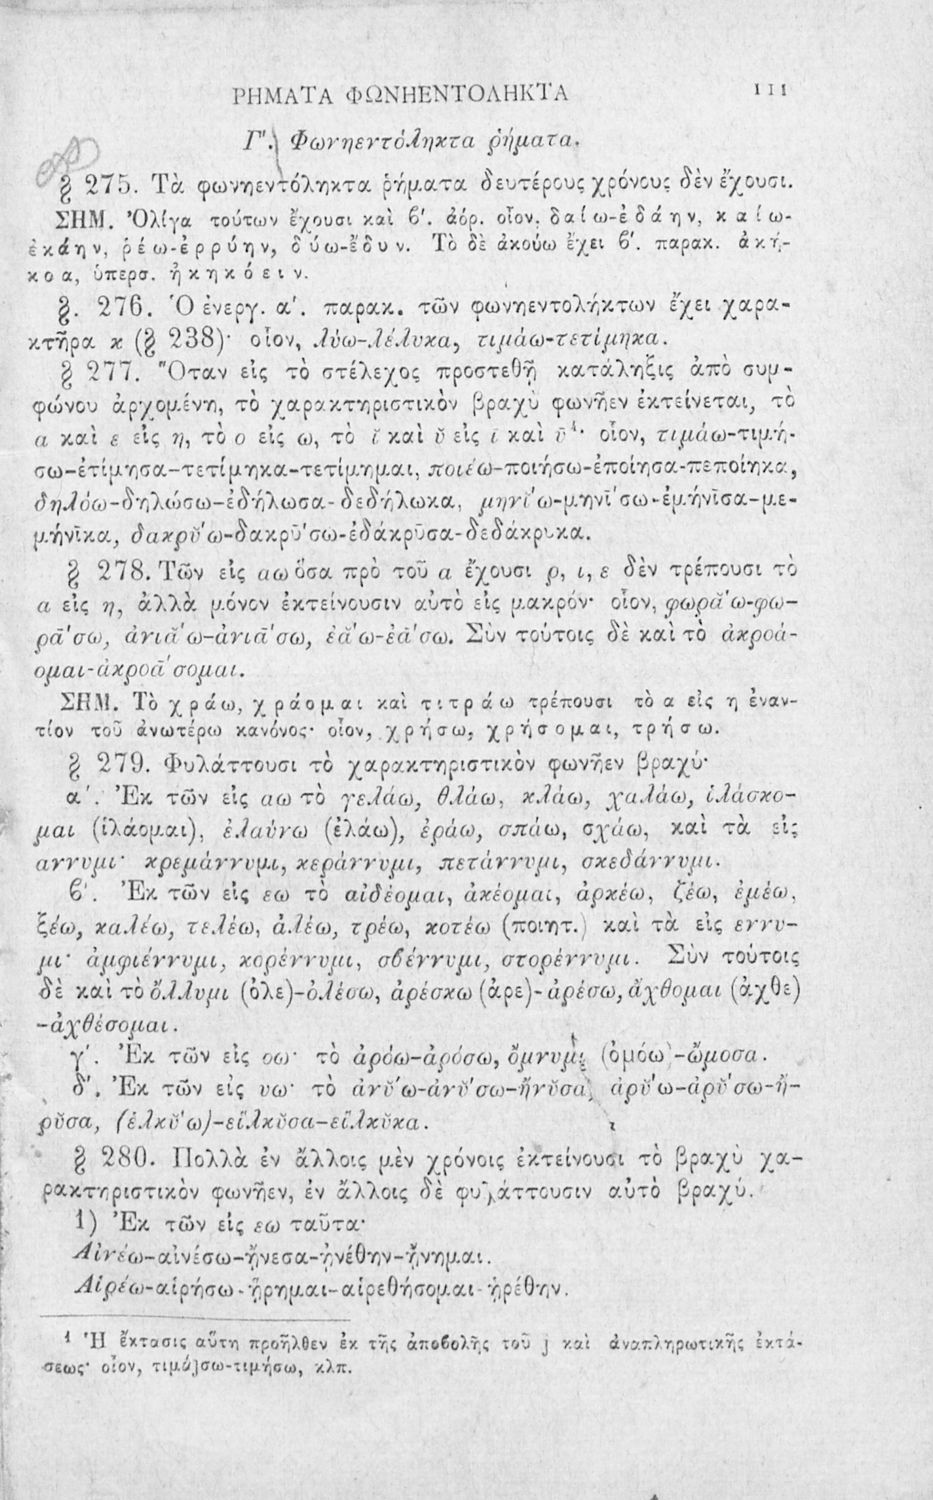 ΡΗΜΑΤΑ ΦΩΝΗΕΝΤΟΛΗΚΤΑ 111
Γ'. Φωνηεντόληκτα ῥήματα.
§ 275. Τὰ φωνηεντόληκτα ῥήματα δευτέρους χρόνους δὲν ἔχουσι.
ΣΗΜ. Ὀλίγα τούτων ἔχουσι καὶ β'. ἀόρ. οἷον, δαίω-ἐδάην, καίω-
ἐκάην, ῥέω-ἐρρύην, δύω-ἔδυν. Τὸ δὲ ἀκούω ἔχει β'. παρακ. ἀκή-
κοα, ὑπερσ. ἠκηκόειν.
§. 276. Ὁ ἐνεργ. α'. παρακ. τῶν φωνηεντολήκτων ἔχει χαρα-
κτῆρα κ (§ 238)· οἷον, λύω-λέλυκα, τιμάω-τετίμηκα.
§ 277. Ὅταν εἰς τὸ στέλεχος προστεθῇ κατάληξις ἀπὸ συμ-
φώνου ἀρχομένη, τὸ χαρακτηριστικὸν βραχὺ φωνῆεν ἐκτείνεται, τὸ
α καὶ ε εἰς η, τὸ ο εἰς ω, τὸ ῐ καὶ ῠ εἰς ῑ καὶ ῡ¹· οἷον, τιμάω-τιμή-
σω-ἐτίμησα-τετίμηκα-τετίμημαι, ποιέω-ποιήσω-ἐποίησα-πεποίηκα,
δηλόω-δηλώσω-ἐδήλωσα-δεδήλωκα, μηνῐ'ω-μηνῑ'σω-ἐμήνῑσα-με-
μήνῑκα, δακρῠ'ω-δακρῡ'σω-ἐδάκρῡσα-δεδάκρυκα.
§ 278. Τῶν εἰς αω ὅσα πρὸ τοῦ α ἔχουσι ρ, ι, ε δὲν τρέπουσι τὸ
α εἰς η, ἀλλὰ μόνον ἐκτείνουσιν αὐτὸ εἰς μακρόν· οἷον, φωρᾰ'ω-φω-
ρᾱ'σω, ἀνιᾰ'ω-ἀνιᾱ'σω, ἐᾰ'ω-ἐᾱ'σω. Σὺν τούτοις δὲ καὶ τὸ ἀκροά-
ομαι-ἀκροᾱ'σομαι.
ΣΗΜ. Τὸ χράω, χράομαι καὶ τιτράω τρέπουσι τὸ α εἰς η ἐναν-
τίον τοῦ ἀνωτέρω κανόνος· οἷον, χρήσω, χρήσομαι, τρήσω.
§ 279. Φυλάττουσι τὸ χαρακτηριστικὸν φωνῆεν βραχύ·
α'. Ἐκ τῶν εἰς αω τὸ γελάω, θλάω, κλάω, χαλάω, ἱλάσκο-
μαι (ἱλάομαι), ἐλαύνω (ἐλάω), ἐράω, σπάω, σχάω, καὶ τὰ εἰς
αννυμι· κρεμάννυμι, κεράννυμι, πετάννυμι, σκεδάννυμι.
β'. Ἐκ τῶν εἰς εω τὸ αἰδέομαι, ἀκέομαι, ἀρκέω, ζέω, ἐμέω,
ξέω, καλέω, τελέω, ἀλέω, τρέω, κοτέω (ποιητ.) καὶ τὰ εἰς εννυ-
μι· ἀμφιέννυμι, κορέννυμι, σβέννυμι, στορέννυμι. Σὺν τούτοις
δὲ καὶ τὸ ὄλλυμι (ὀλε)-ὀλέσω, ἀρέσκω (ἀρε)-ἀρέσω, ἄχθομαι (ἀχθε)
-ἀχθέσομαι.
γ'. Ἐκ τῶν εἰς οω· τὸ ἀρόω-ἀρόσω, ὄμνυμι (ὀμόω)-ὤμοσα.
δ'. Ἐκ τῶν εἰς υω· τὸ ἀνῠ'ω-ἀνῠ'σω-ἤνῠσα, ἀρῠ'ω-ἀρῠ'σω-ἤ-
ρῠσα, (ἑλκῠ'ω)-εἵλκῠσα-εἵλκῠκα.
§ 280. Πολλὰ ἐν ἄλλοις μὲν χρόνοις ἐκτείνουσι τὸ βραχὺ χα-
ρακτηριστικὸν φωνῆεν, ἐν ἄλλοις δὲ φυλάττουσιν αὐτὸ βραχύ.
1) Ἐκ τῶν εἰς εω ταῦτα·
Αἰνέω-αἰνέσω-ᾔνεσα-ᾐνέθην-ᾔνημαι.
Αἱρέω-αἱρήσω-ᾕρημαι-αἱρεθήσομαι-ᾑρέθην.
¹ Ἡ ἔκτασις αὕτη προῆλθεν ἐκ τῆς ἀποβολῆς τοῦ j καὶ ἀναπληρωτικῆς ἐκτά-
σεως· οἷον, τιμάjσω-τιμήσω, κλπ.